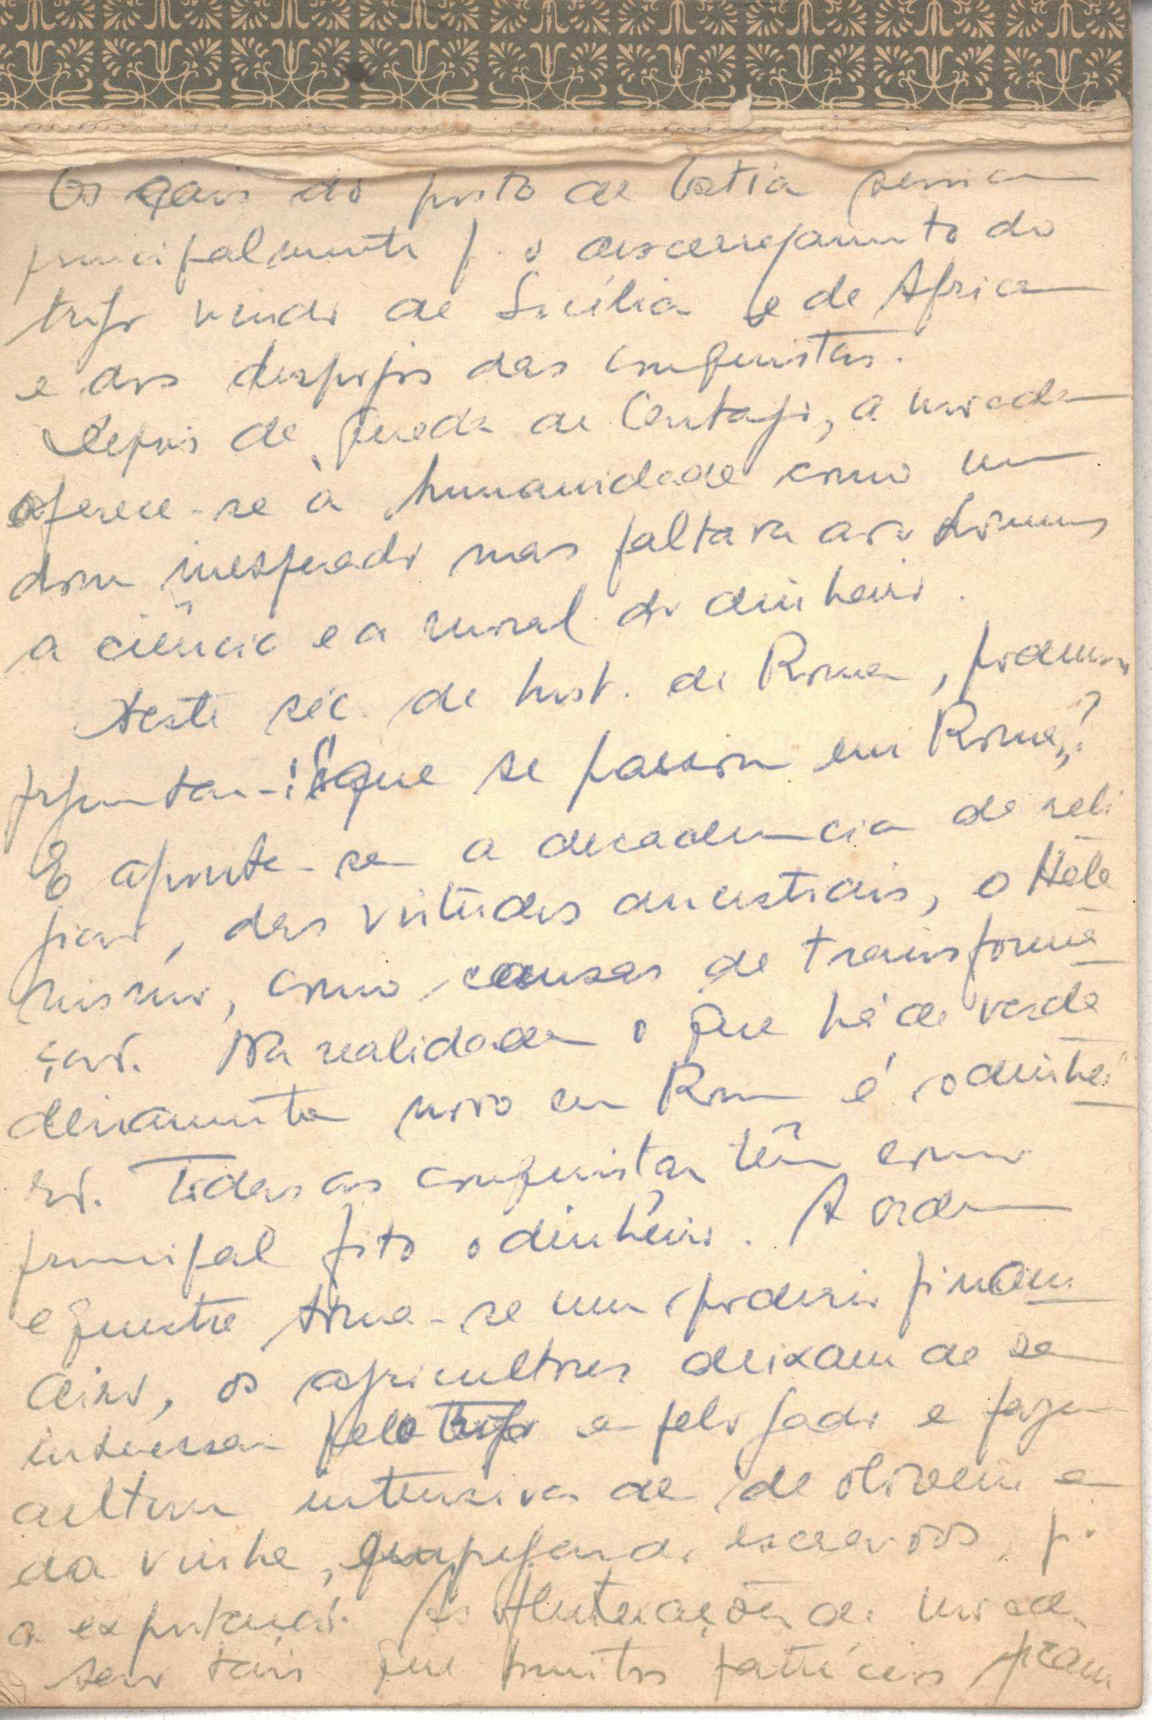 Os cais do porto de Ostia serviam
principalmente p. o descarregamento do
trigo vindo de Sicília e de Africa
e dos despojos das conquistas.
Depois de queda de Cartago, a moeda
oferece-se à humanidade como um
dom inesperado mas faltava aos homens
a ciência e a moral do dinheiro.
Neste séc. de hist. de Roma, podemos
perguntar-: O que se passou em Roma?
E aponta-se a decadencia de reli
gião, das virtudes ancestrais, o Hele
nismo, como causas de transforma
ção. Na realidade o que há de verda
deiramente novo em Roma é o dinhei
ro. Todas as conquistas têm como
principal fito o dinheiro. A ordem
equestre torna-se um poderio finan
ceiro, os agricultores deixam de se
interessar pelo trigo e pelo gado e fazem
cultura intensiva de de oliveira e
da vinha, empregando escravos p.
a exportação. As flutuações da moeda
são tais que muitos patrícios ficam